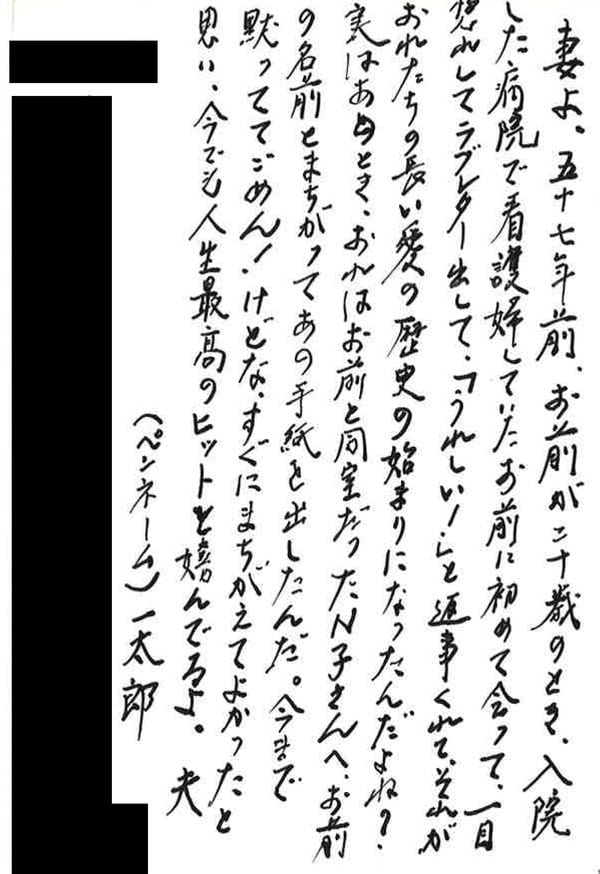 妻よ。五十七年前、お前が二十歳のとき、入院
した病院で看護婦していたお前に初めて会って、一目
惚れしてラブレター出して、「うれしい!」と返事くれて、それが
おれたちの長い愛の歴史の始まりになったんだよね?
実はあのとき、おれはお前と同室だったN子さんへ、お前
の名前とまちがってあの手紙を出したんだ。今まで
黙っててごめん!けどな、すぐにまちがえてよかったと
思い、今でも人生最高のヒットと喜んでるよ。 夫
(ペンネーム)一太郎